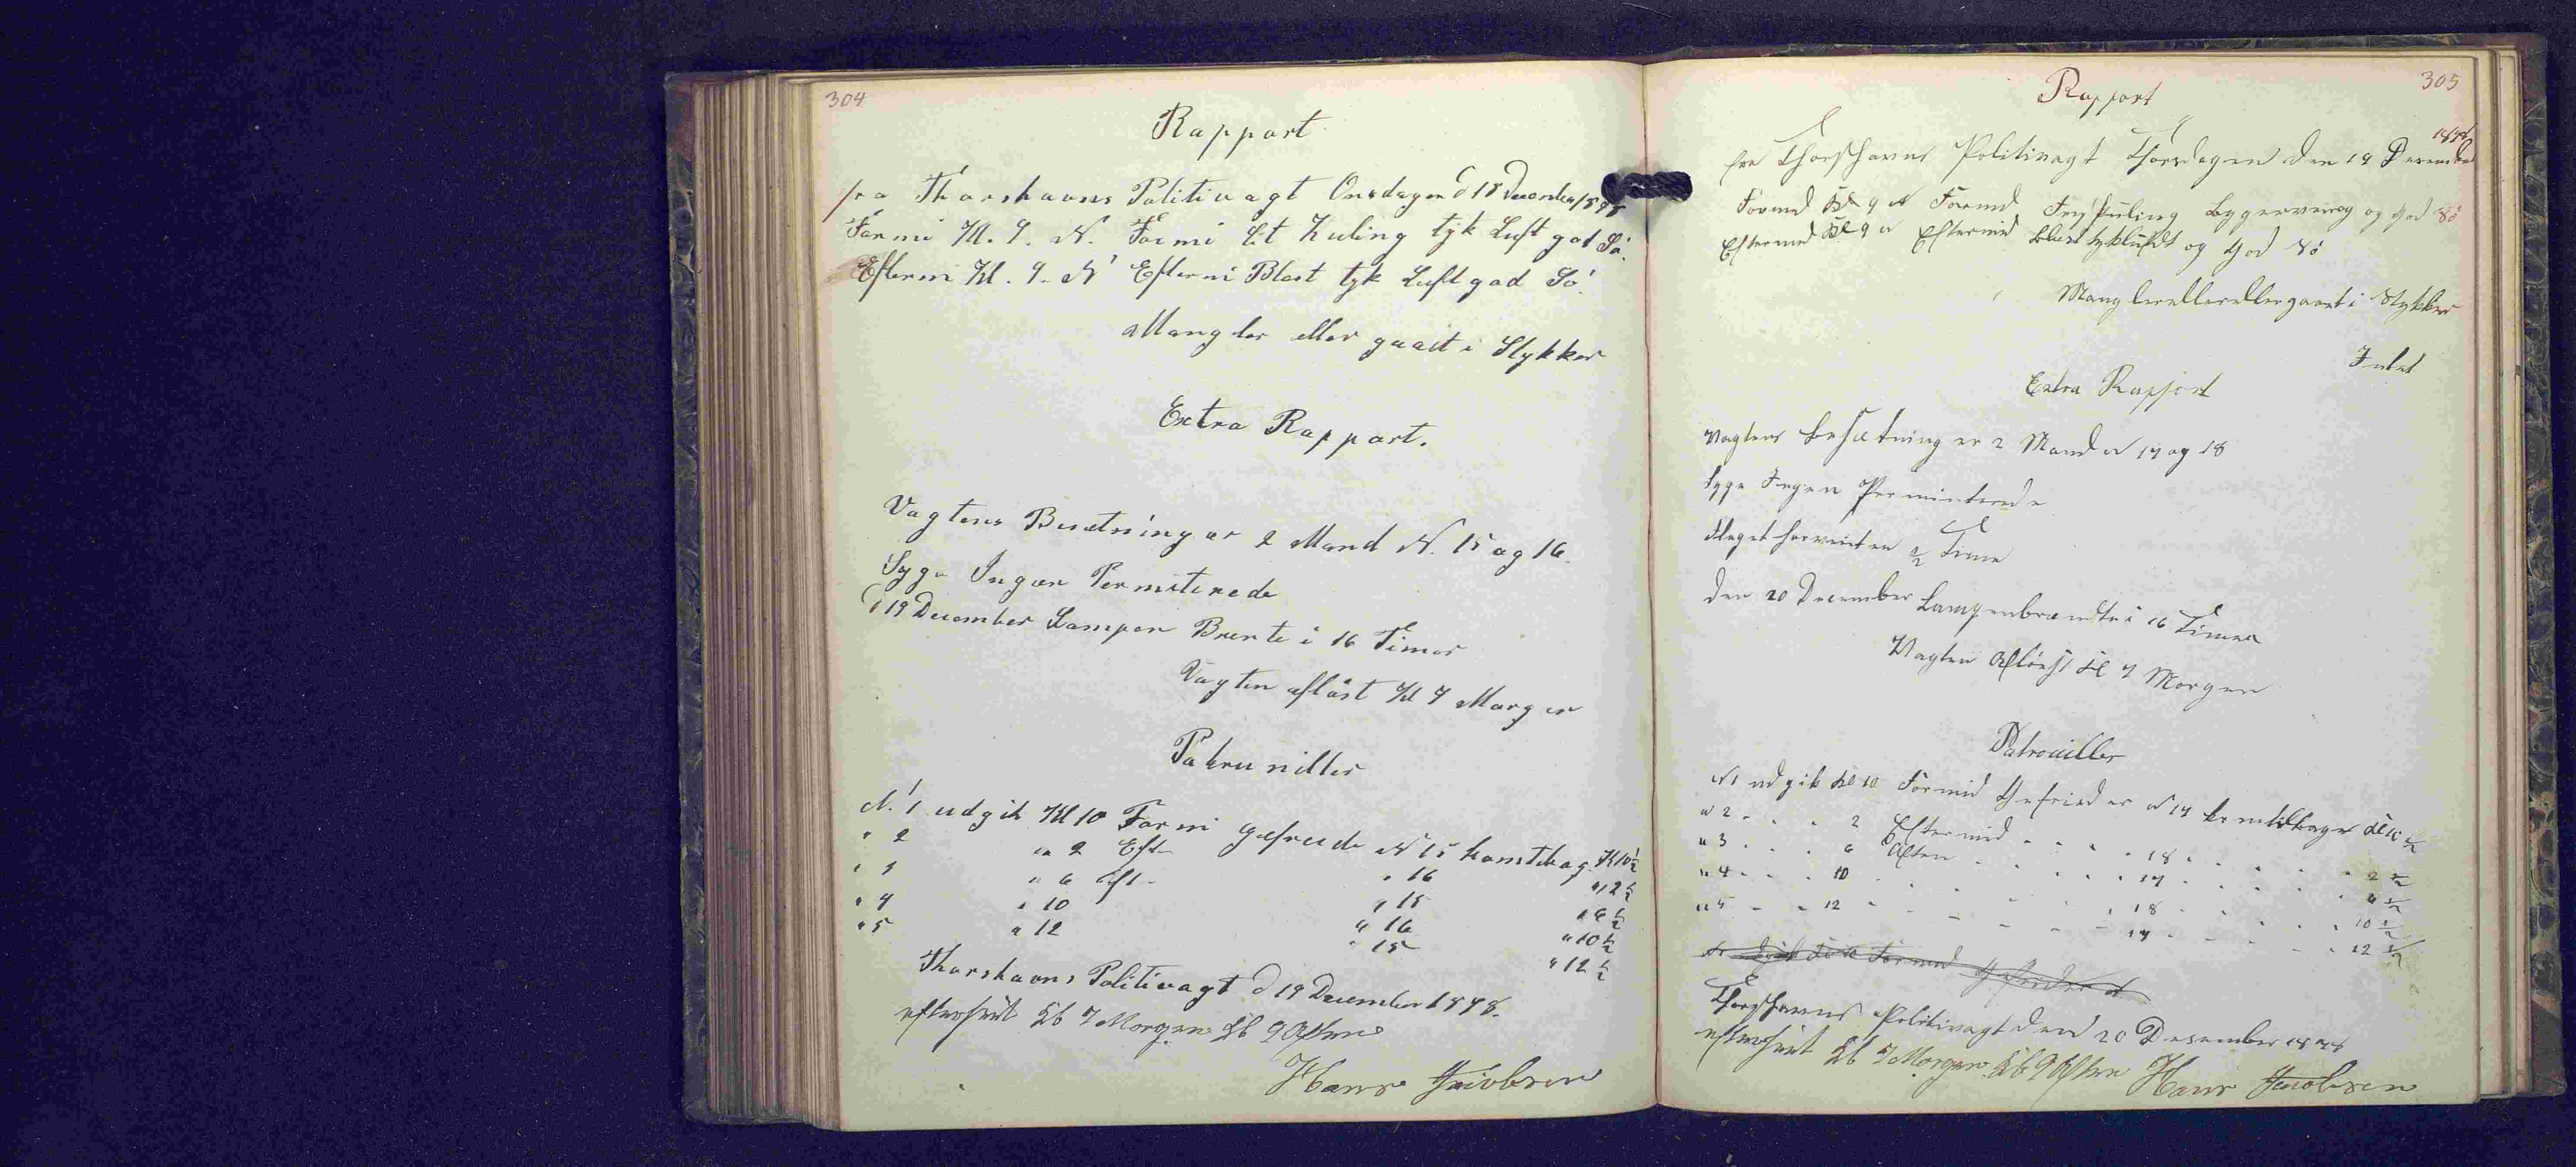 304
Rapport
fra Thorshavns Politivagt Onsdagen d 18 December 1878
Formi Kl. 9. N. Formi Let Kuling tyk Luft god Sö.
Eftermi Kl. 9. N Eftermi Blast tyk Luft god Sö.
Mangler eller gaait i Stykker
Extra Rapport.
Vagtens Besætning er 2 Mand N. 15 og 16.
Syge Ingen Permiterede
d 19 December Lampen Brente i 16 Timer
Vagten aflöst Kl 7 Morgen
Patruniller
N. 1 udgik Kl 10 Formi Gefreide N 15 komtilbag Kl 10½
" 2 " 2 Eft- " 16 " 2½
" 3 " 6 Aft- " 15 " 6½
" 4 " 10 " 16 " 10½
" 5 " 12 " 15 " 12½
Thorshavns Politivagt d 19 December 1878.
efterseet Kl 7 Morgen Kl 9 Aften
Hans Jacobsen
305
Rapport
1878
fra Thorshavns Politivagt Thorsdagen den 19 December
Formd Kl 9 N Formd Friskuling Bygerveirog og god Sö
Eftermd Kl 9 N Eftermid Blæst tykluft og god Sö
Manglerellerellergaaet i Stykker
Intet
Extra Rapport
Vagtens besætning er 2 Mand N 17 og 18
Syge Ingen Permiterede
Flaget har veiet en ½ Time
den 20 December Lampenbrændte i 16 Timer
Vagten Aflöst Kl 7 Morgen
Patrouiller
N1 udgik Kl 10 Formid Gefreider N 17 komtilbage Kl 10½
" 2 . . . 2 Eftermid . . . 18 . . . 2½
" 3 . . . 6 Aften . . . 17 . . . 6½
" 4 . . . 10 . . . 18 . . . 10½
" 5 . . . 12 . . . 17 . . . 12½
Thorshavns Politivagt den 20 Desember 1878
efterseet Kl 7 Morgen Kl 9 Aften Hans Jacobsen